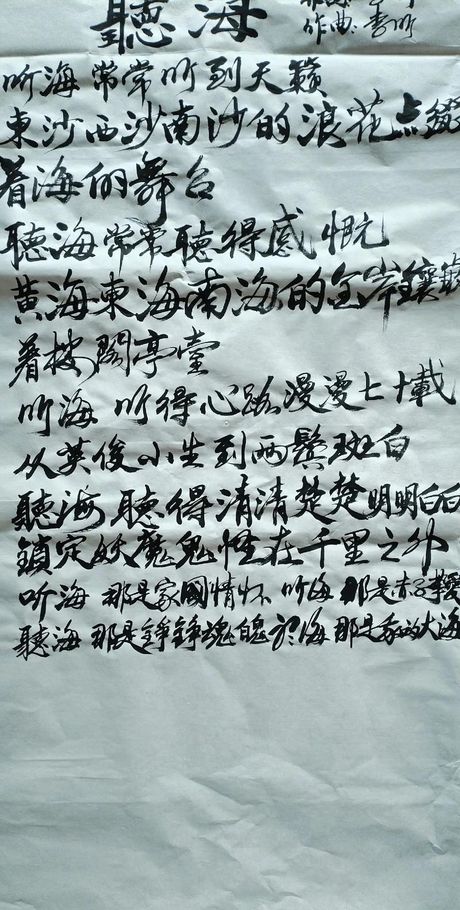 聽海
作曲:李昕
听海常常听到天籟
東沙西沙南沙的浪花点綴
着海的舞台
聽海常常聽得感慨
黃海東海南海的金岸鑲嵌
着楼閣亭臺
听海 听得心路漫漫七十載
从英俊小生到两鬓斑白
聽海 聽得清清楚楚明明白白
鎖定妖魔鬼怪在千里之外
听海 那是家國情怀 听海 那是赤子
聽海 那是錚錚魂魄 听海 那是我的大海